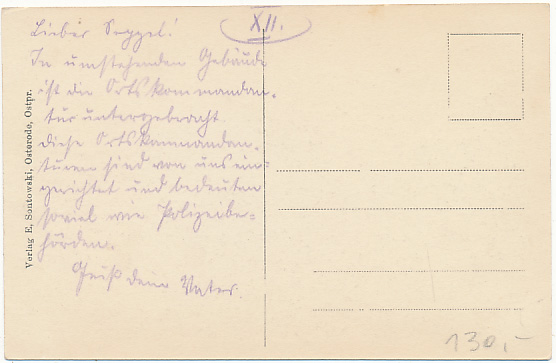 XII.
Lieber Seppel!
In umstehenden Gebäude
ist die Ortskommandan-
tur untergebracht
diese Ortskommandan-
turen sind von uns ein-
gerichtet und bedeuten
soviel wie Polizeibe-
hörden.
Gruß dein Vater.
Verlag E. Sontowski, Osterode, Ostpr.
130,-